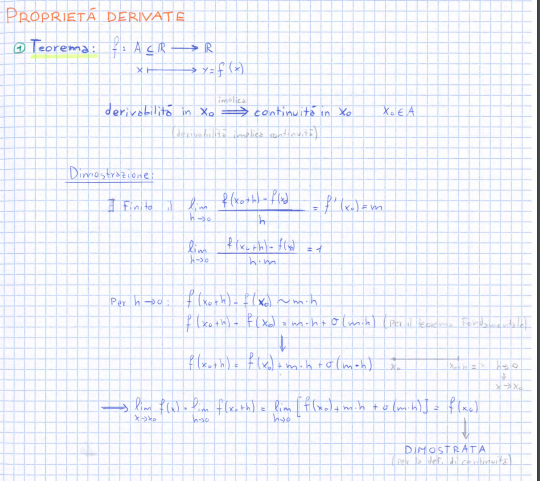 PROPRIETÁ DERIVATE
① Teorema: f: A ⊆ ℝ ⟶ ℝ
x ⟼ y=f(x)
implica
derivabilitá in x₀ ⟹ continuitá in x₀ x₀ ∈ A
(derivabilitá implica continuitá)
Dimostrazione:
∃ Finito il lim h→0 f(x₀+h)-f(x) / h = f'(x₀)=m
lim h→0 f(x₀+h)-f(x) / h·m = 1
Per h→0: f(x₀+h)-f(x₀) ~ m·h
f(x₀+h)-f(x₀) = m·h + σ(m·h) (per il teorema Fondamentale)
↓
f(x₀+h) = f(x₀)+m·h + σ(m·h) x₀ x₀+h => h→0
↓
x→x₀
⟹ lim x→x₀ f(x) = lim h→0 f(x₀+h) = lim h→0 [f(x₀)+m·h + σ(m·h)] = f(x₀)
↓
DIMOSTRATA
(per la def. di continuitá)